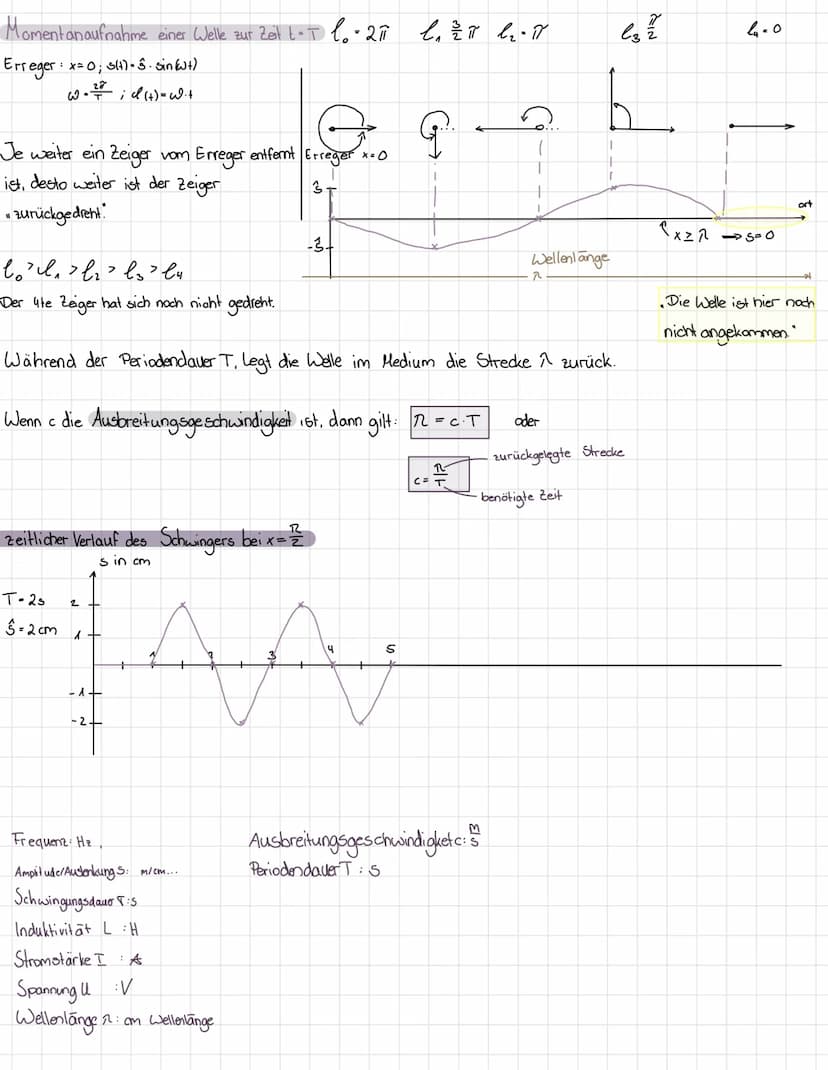 Momentanaufnahme einer Welle zur Zeit t=T φ₀=2π φ₁ 3/2 π φ₂=π φ₃ π/2 φ₄=0
Erreger: x=0; s(t)=ŝ·sin(ωt)
ω=2π/T ; φ(t)=ω·t
Je weiter ein Zeiger vom Erreger entfernt
ist, desto weiter ist der Zeiger
"zurückgedreht."
Erreger x=0
ŝ
-ŝ
ort
x≥λ →s=0
Wellenlänge
λ
φ₀>φ₁>φ₂>φ₃>φ₄
Der 4te Zeiger hat sich noch nicht gedreht.
"Die Welle ist hier noch
nicht angekommen."
Während der Periodendauer T, legt die Welle im Medium die Strecke λ zurück.
Wenn c die Ausbreitungsgeschwindigkeit ist, dann gilt: λ = c·T oder
c= λ/T
zurückgelegte Strecke
benötigte Zeit
zeitlicher Verlauf des Schwingers bei x=λ/2
s in cm
T=2s
ŝ=2cm
2
1
-1
-2
1 2 3 4 5
Frequenz: Hz,
Amplitude/Auslenkung s: m/cm...
Schwingungsdauer T:s
Induktivität L :H
Stromstärke I : A
Spannung U :V
Wellenlänge λ: cm Wellenlänge
Ausbreitungsgeschwindigket c: m/s
Periodendauer T : s